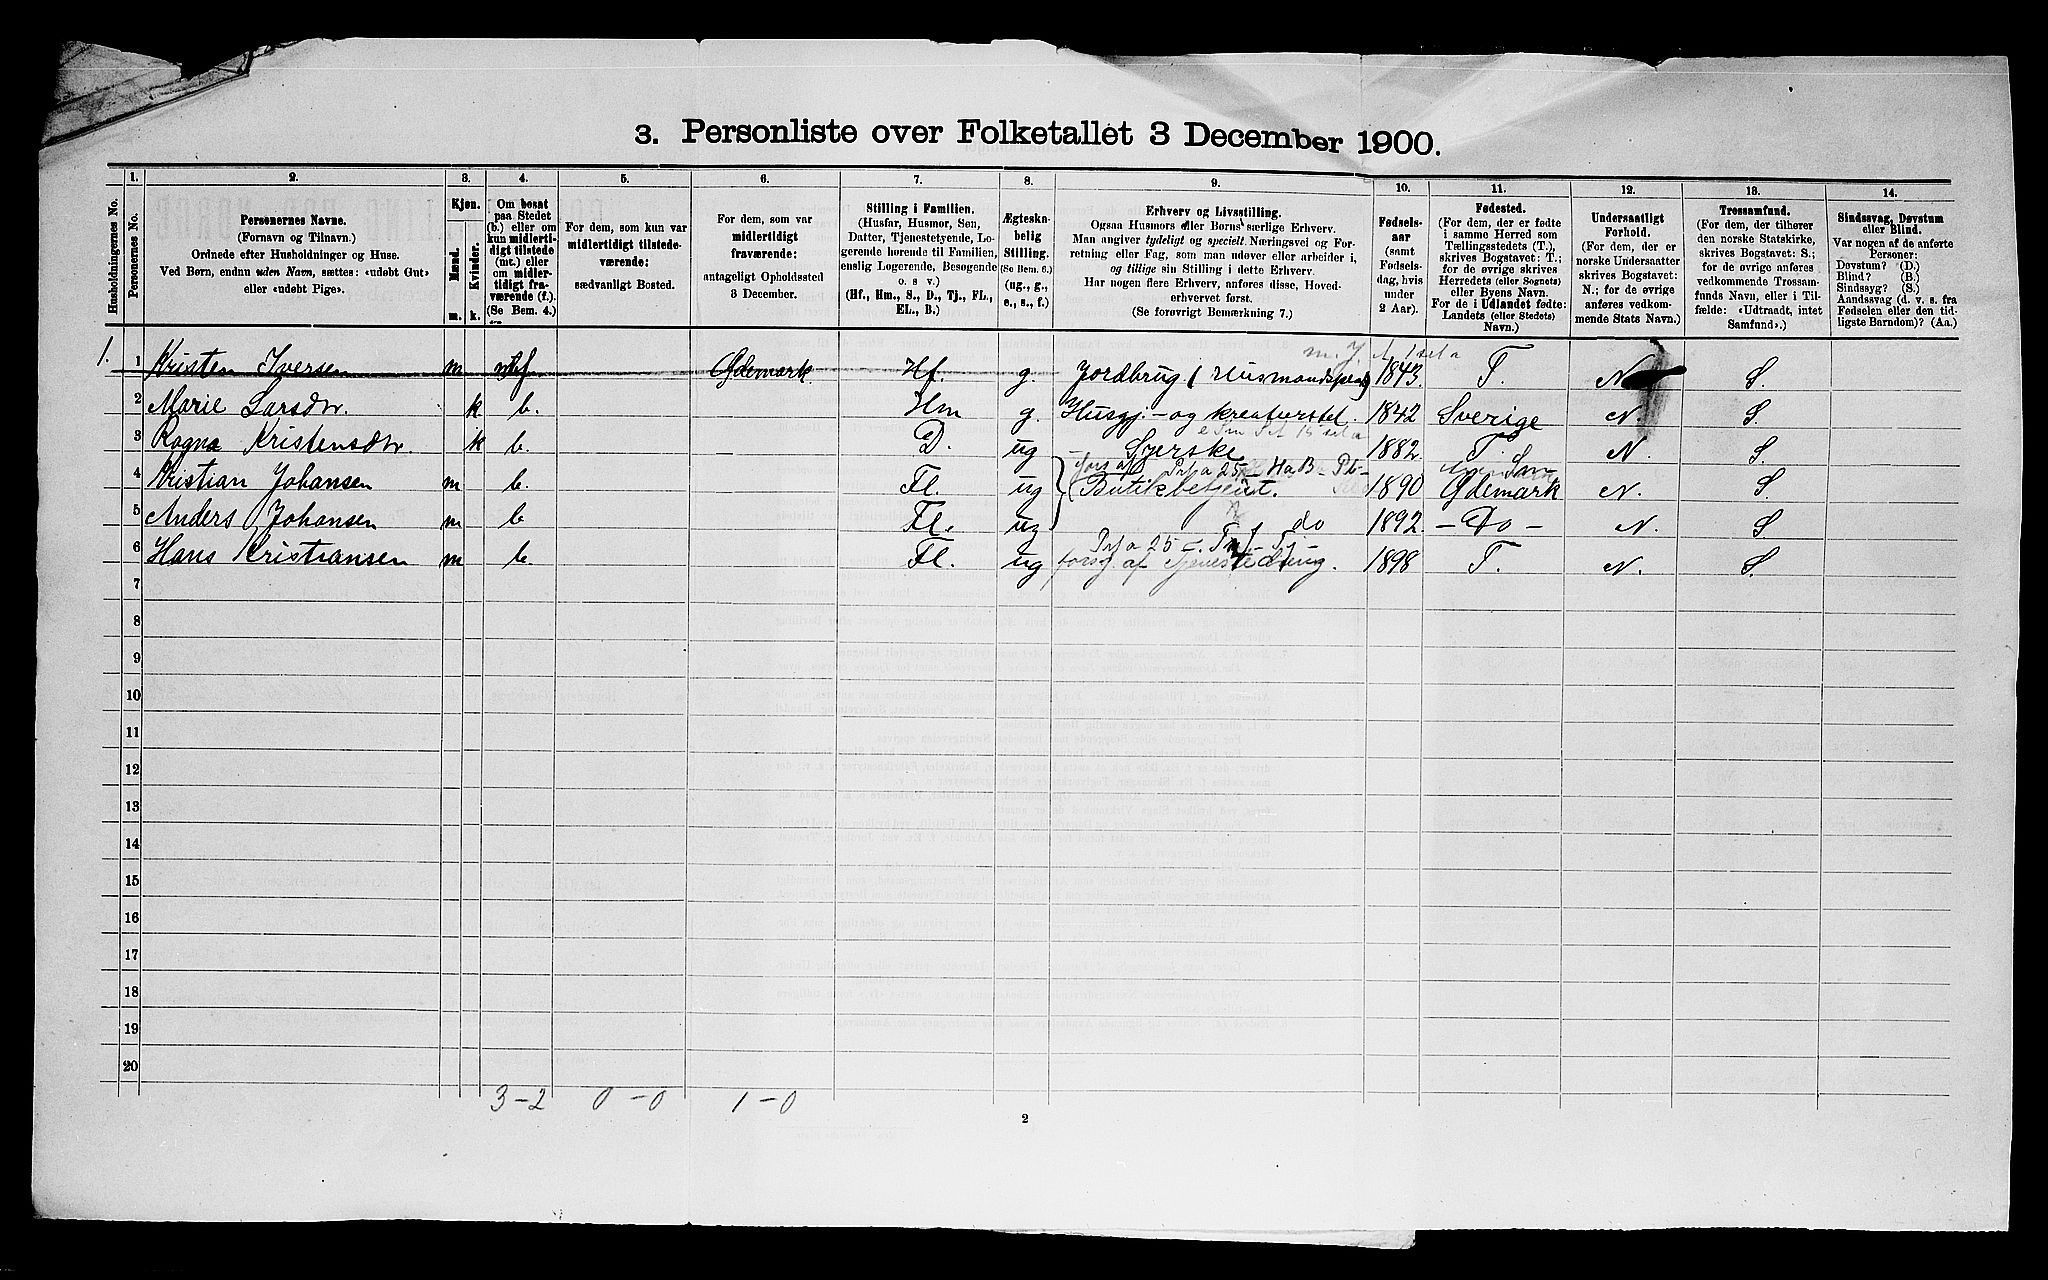 3. Personliste over Folketallet 3 December 1900.
1. 2. 3. 4. 5. 6. 7. 8. 9. 10. 11. 12. 13. 14.
Husholdningernes No.
Personernes No.
Personernes Navne.
(Fornavn og Tilnavn.)
Ordnede efter Husholdninger og Huse.
Ved Børn, endnu uden Navn, sættes: «udøbt Gut»
eller «udøbt Pige».
Kjøn.
Mænd.
Kvinder.
m. k.
Om bosat
paa Stedet
(b.) eller om
kun midlerti-
digt tilstede
(mt.) eller
om midler-
tidigt fra-
værende (f.).
(Se Bem. 4.)
For dem, som kun var
midlertidigt tilstede-
værende:
sædvanligt Bosted.
For dem, som var
midlertidigt
fraværende:
antageligt Opholdssted
3 December.
Stilling i Familien.
(Husfar, Husmor, Søn,
Datter, Tjenestetyende, Lo-
gerende hørende til Familien,
enslig Logerende, Besøgende
o. s v.)
(Hf., Hm., S., D., Tj., FL.,
EL., B.)
Ægteska-
belig
Stilling.
(Se Bem. 6.)
(ug., g.,
e., s., f.)
Erhverv og Livsstilling.
Ogsaa Husmors eller Børns særlige Erhverv.
Man angiver tydeligt og specielt Næringsvei og For-
retning eller Fag, som man udøver eller arbeider i,
og tillige sin Stilling i dette Erhverv.
Har nogen flere Erhverv, anføres disse, Hoved-
erhvervet først.
(Se forøvrigt Bemærkning 7.)
Fødsels-
aar
(samt
Fødsels-
dag, hvis
under
2 Aar).
Fødested.
(For dem, der er fødte
i samme Herred som
Tællingsstedets (T.),
skrives Bogstavet: T.;
for de øvrige skrives
Herredets (eller Sognets)
eller Byens Navn.
For de i Udlandet fødte:
Landets (eller Stedets)
Navn.)
Undersaatligt
Forhold.
(For dem, der er
norske Undersaatter
skrives Bogstavet:
N.; for de øvrige
anføres vedkom-
mende Stats Navn.)
Trossamfund.
(For dem, der tilhører
den norske Statskirke,
skrives Bogstavet: S.;
for de øvrige anføres
vedkommende Trossam-
funds Navn, eller i Til-
fælde: «Udtraadt, intet
Samfund».)
Sindssvag, Døvstum
eller Blind.
Var nogen af de anførte
Personer:
Døvstum? (D.)
Blind? (B.)
Sindssyg? (S.)
Aandssvag (d. v. s. fra
Fødselen eller den tid-
ligste Barndom)? (Aa.)
1. 1 Kristen Iversen m f Ødemark Hf. g. Jordbrug (Husmandsplads) 1843. T. N S.
2 Marie Larsdtr. k b. Hm g. Husgj.- og kreaturstel. 1842 Sverige N S.
3 Ragna Kristensdtr. k b. D. ug Syerske 1882. T. N. S.
4 Kristian Johansen m b. Fl. ug fors. af Butikbetjent. 1890 Ødemark N. S.
5 Anders Johansen m b Fl. ug do 1892. - Do - N. S.
6 Hans Kristiansen m b. Fl. ug fors. af 1898 T. N. S.
7
8
9
10
11
12
13
14
15
16
17
18
19
20
3-2 0-0 1-0
2